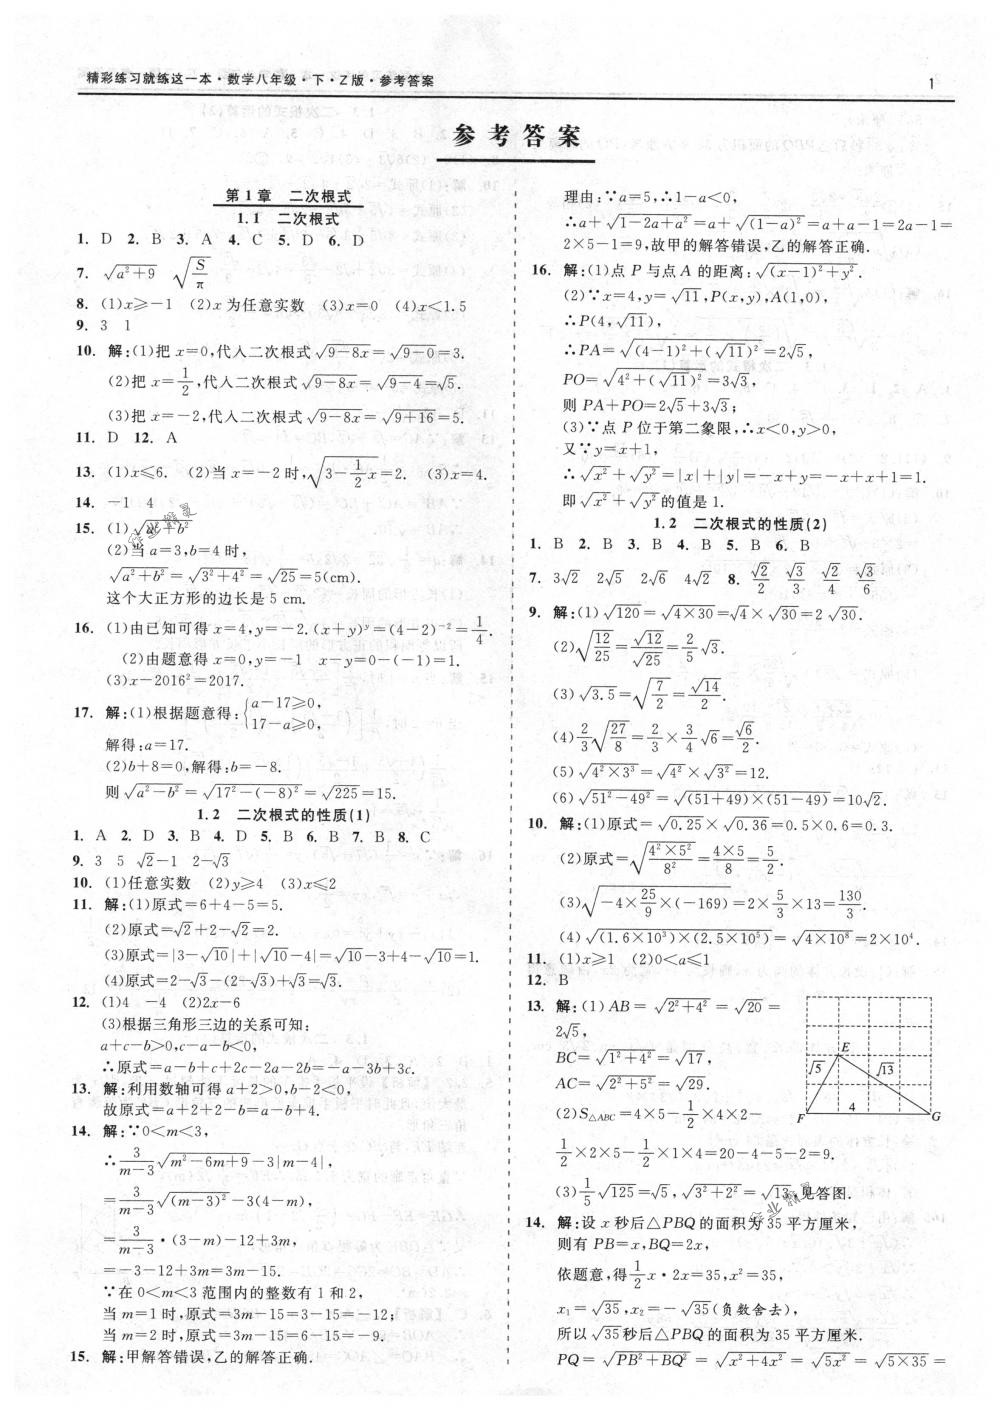 精彩练习就练这一本·数学八年级·下·Z版·参考答案 1
参考答案
第1章 二次根式
1.1 二次根式
1. D 2. B 3. A 4. C 5. D 6. D
7. √(a²+9) √(S/π)
8. (1)x≥-1 (2)x为任意实数 (3)x=0 (4)x<1.5
9. 3 1
10. 解:(1)把 x=0,代入二次根式√(9-8x)=√(9-0)=3.
(2)把 x=1/2,代入二次根式√(9-8x)=√(9-4)=√5.
(3)把 x=-2,代入二次根式√(9-8x)=√(9+16)=5.
11. D 12. A
13. (1)x≤6. (2)当 x=-2 时,√(3-1/2x)=2. (3)x=4.
14. -1 4
15. (1)√(a²+b²)
(2)当 a=3,b=4 时,
√(a²+b²)=√(3²+4²)=√25=5(cm).
这个大正方形的边长是 5 cm.
16. (1)由已知可得 x=4,y=-2.(x+y)ʸ=(4-2)⁻²=1/4.
(2)由题意得 x=0,y=-1 x-y=0-(-1)=1.
(3)x-2016²=2017.
17. 解:(1)根据题意得:{a-17≥0,
17-a≥0,
解得:a=17.
(2)b+8=0,解得:b=-8.
则√(a²-b²)=√(17²-(-8)²)=√225=15.
1.2 二次根式的性质(1)
1. A 2. D 3. B 4. D 5. B 6. B 7. B 8. C
9. 3 5 √2-1 2-√3
10. (1)任意实数 (2)y≥4 (3)x≤2
11. 解:(1)原式=6+4-5=5.
(2)原式=√2+2-√2=2.
(3)原式=|3-√10|+|√10-4|=√10-3+4-√10=1.
(4)原式=2-√3-(2-√3)+√3=√3.
12. (1)4 -4 (2)2x-6
(3)根据三角形三边的关系可知:
a+c-b>0,c-a-b<0,
∴原式=a-b+c+2c-2a-2b=-a-3b+3c.
13. 解:利用数轴可得 a+2>0,b-2<0,
故原式=a+2+2-b=a-b+4.
14. 解:∵0<m<3,
∴3/(m-3)√(m²-6m+9)-3|m-4|,
=3/(m-3)√((m-3)²)-3(4-m),
=3/(m-3)·(3-m)-12+3m,
=-3-12+3m=3m-15.
∵在 0<m<3 范围内的整数有 1 和 2,
当 m=1 时,原式=3m-15=3-15=-12;
当 m=2 时,原式=3m-15=6-15=-9.
15. 解:甲解答错误,乙的解答正确.
理由:∵a=5,∴1-a<0,
∴a+√(1-2a+a²)=a+√((1-a)²)=a+a-1=2a-1=
2×5-1=9,故甲的解答错误,乙的解答正确.
16. 解:(1)点 P 与点 A 的距离:√((x-1)²+y²).
(2)∵x=4,y=√11,P(x,y),A(1,0),
∴P(4,√11),
∴PA=√((4-1)²+(√11)²)=2√5,
PO=√(4²+(√11)²)=3√3,
则 PA+PO=2√5+3√3;
(3)∵点 P 位于第二象限,∴x<0,y>0,
又∵y=x+1,
∴√x²+√y²=|x|+|y|=-x+y=-x+x+1=1.
即√x²+√y²的值是 1.
1.2 二次根式的性质(2)
1. B 2. B 3. B 4. B 5. B 6. B
7. 3√2 2√5 2√6 4√2 8. √2/2 √3/3 √2/4 √3/6
9. 解:(1)√120=√(4×30)=√4×√30=2√30.
(2)√(12/25)=√12/√25=2/5√3.
(3)√3.5=√(7/2)=√14/2.
(4)2/3√(27/8)=2/3×3/4√6=√6/2.
(5)√(4²×3³)=√4²×√3²=12.
(6)√(51²-49²)=√((51+49)×(51-49))=10√2.
10. 解:(1)原式=√0.25×√0.36=0.5×0.6=0.3.
(2)原式=√(4²×5²/8²)=4×5/8=5/2.
(3)√(-4×25/9×(-169))=2×5/3×13=130/3.
(4)√((1.6×10³)×(2.5×10⁵))=√(4×10⁸)=2×10⁴.
11. (1)x≥1 (2)0<a≤1
12. B
13. 解:(1)AB=√(2²+4²)=√20=
2√5,
BC=√(1²+4²)=√17,
AC=√(2²+5²)=√29.
(2)S△ABC=4×5-1/2×4×2-
1/2×2×5-1/2×1×4=20-4-5-2=9.
(3)1/5√125=√5,√(3²+2²)=√13,见答图.
E
√5 √13
4
F G
14. 解:设 x 秒后△PBQ 的面积为 35 平方厘米,
则有 PB=x,BQ=2x,
依题意,得1/2x·2x=35,x²=35,
x₁=√35,x₂=-√35(负数舍去),
所以√35秒后△PBQ 的面积为 35 平方厘米.
PQ=√(PB²+BQ²)=√(x²+4x²)=√(5x²)=√(5×35)=